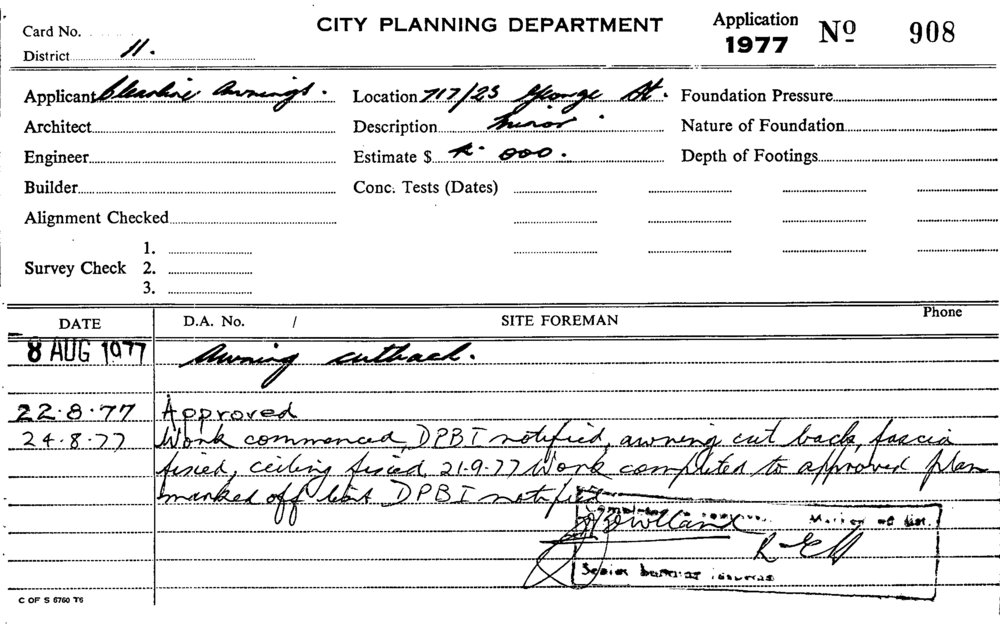 CITY PLANNING DEPARTMENT
Card No.
District 11.
Application 1977 Nº 908
Applicant Clearline Awnings.
Location 717/23 George St.
Foundation Pressure
Architect
Description Minor
Nature of Foundation
Engineer
Estimate $ 000.
Depth of Footings
Builder
Conc. Tests (Dates)
Alignment Checked
Survey Check 1.
2.
3.
DATE D.A. No. / SITE FOREMAN Phone
8 AUG 1977 Awning cutback.
22.8.77 Approved
24.8.77 Work commenced, DPBI notified, awning cut back, fascia
fixed, ceiling fixed 21.9.77 Work completed to approved plan
marked off list DPBI notified
Marked off list.
Senior
C OF S 6760 T6